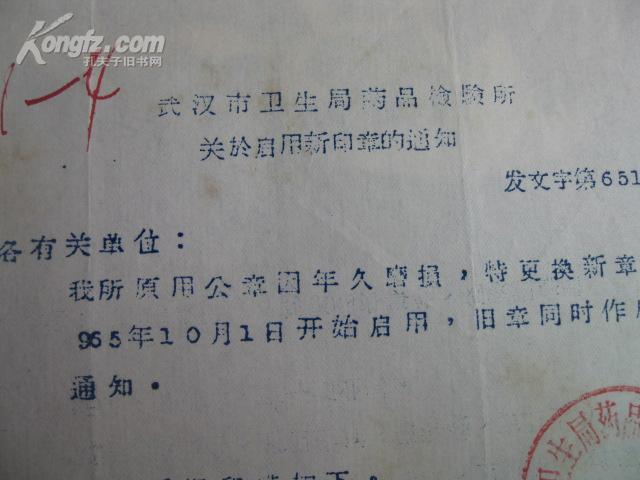 Kongfz.com
孔夫子旧书网
1-4
武汉市卫生局药品检驗所
关於启用新印章的通知
发文字第651
各有关单位：
我所原用公章因年久磨損，特更换新章
965年10月1日开始启用，旧章同时作
通知．
卫生局药品
如下。